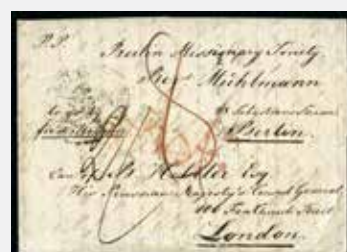 P.P.
Berlin Missionary Society
Revd Mühlmann
Sebastian
to go by
Berlin.
Care of
Hebeler Esq
His Prussian Majesty's Consul General,
106 Fenchurch Street
London.